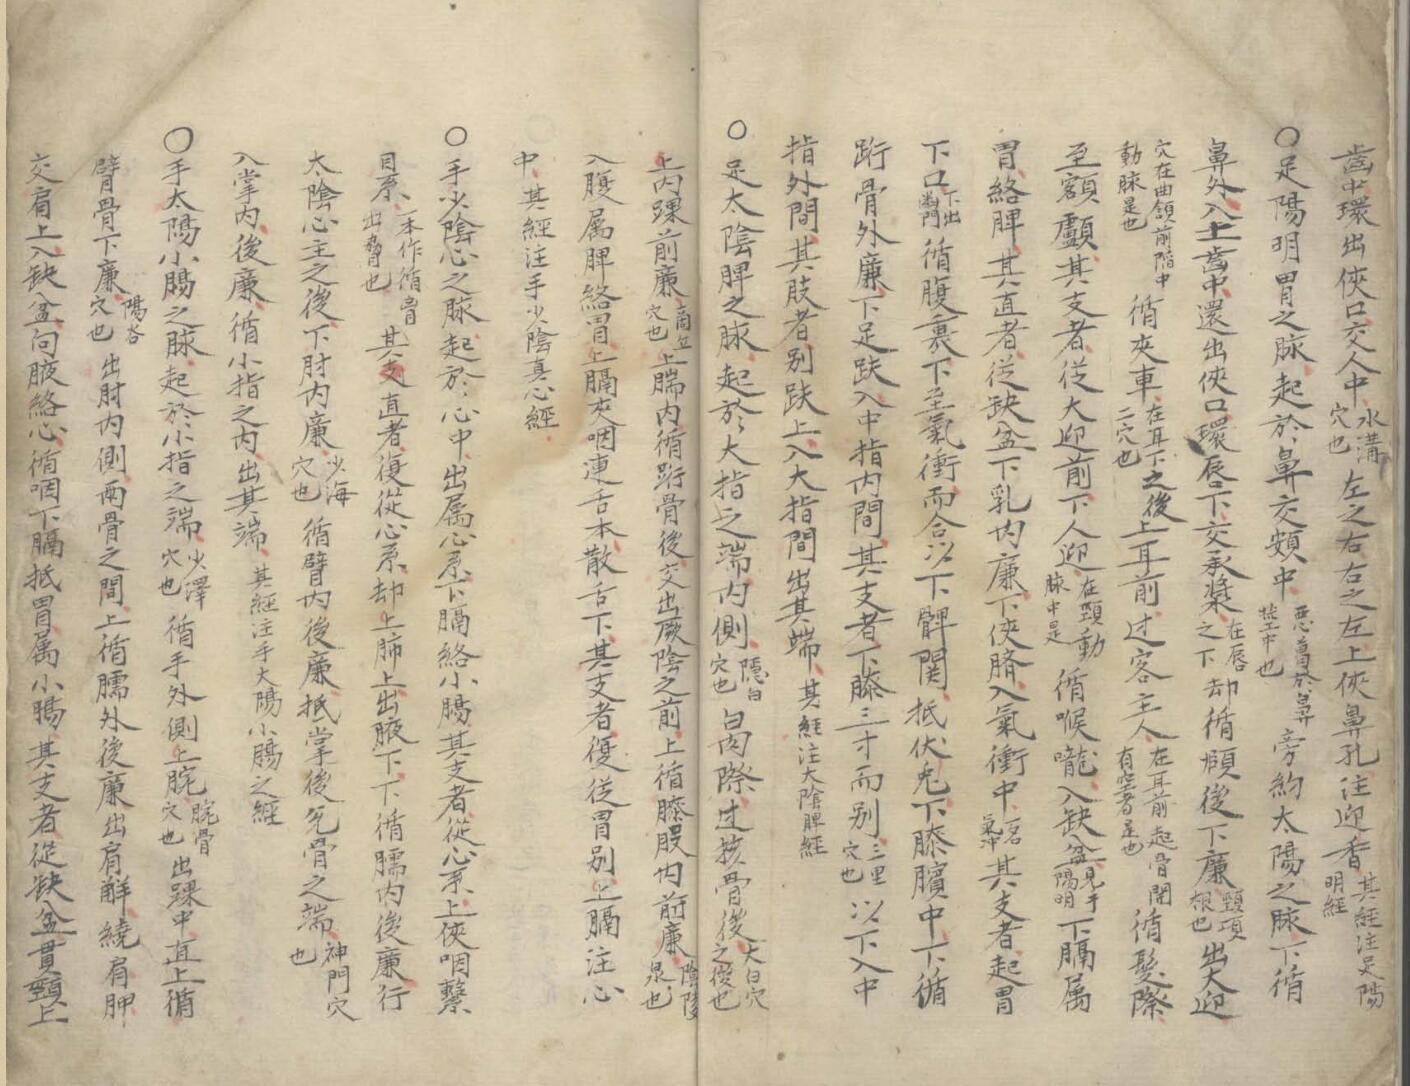 齒中環出俠口交人中水溝穴也左之右右之左上俠鼻孔注迎香其經注足陽明經
○足陽明胃之脉起於鼻交頞中悪曽於鼻莖中也旁約太陽之脉下循
鼻外入上齒中還出俠口環唇下交承漿在唇之下却循頥後下廉頸項根也出大迎
穴在曲頷前陷中動脉是也循夾車在耳下二穴也之後上耳前过客主人在耳前起骨開有空者是也循髮際
至額顱其支者從大迎前下人迎在頸動脉中是循喉嚨入缺盆見手陽明下膈属
胃絡脾其直者從缺盆下乳内廉下俠臍入氣衝中一名氣冲其支者起胃
下口下出幽門循腹裏下至氣衝而合以下髀関抵伏兎下膝臏中下循
跗骨外廉下足趺入中指内間其支者下膝三寸而别三里穴也以下入中
指外間其肢者别趺上入大指間出其端其經注太陰脾經
○足太陰脾之脉起於大指之端内側隱白穴也曷際过核骨後大白穴之後也
上内踝前廉商丘穴也上腨内循跗骨後交出厥陰之前上循膝股内前廉陰陵泉也
入腹属脾絡胃上膈夾咽連舌本散舌下其支者復從胃别上膈注心
中其經注手少陰真心經
○手少陰心之脉起於心中出属心系下膈絡小腸其支者從心系上俠咽繫
目系一本作循胷出脅也其支直者復從心系却上肺上出腋下下循臑内後廉行
太陰心主之後下肘内廉少海穴也循臂内後廉抵掌後兌骨之端神門穴也
入掌内後廉循小指之内出其端其經注手太陽小腸之經
○手太陽小腸之脉起於小指之端少澤穴也循手外側上腕腕骨穴也出踝中直上循
臂骨下廉陽谷穴也出肘内側両骨之間上循臑外後廉出肩解繞肩胛
交肩上入缺盆向腋絡心循咽下膈抵胃属小腸其支者從缺盆貫頸上